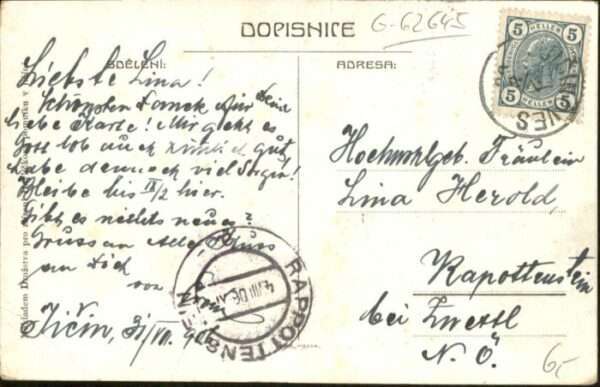 DOPISNICE
G-62645
SDĚLENÍ:
ADRESA:
5 HELLER 5
5 HELLER 5
Liebste Lina!
Schönsten Dank für Deine
liebe Karte! Mir geht es
Gott lob auch ziemlich gut,
habe dennoch viel Sorgen!
Bleibe bis IX/2 hier.
Gibt es nichts neues
Gruss an Alle Kuss
an Dich
von
Jičín, 31/VII.
Hochwohlgeb. Fräulein
Lina Herold,
Rapottenstein
bei Zwettl
N. Ö.
RAPPOTTENSTEIN
4.VIII.06
6,-